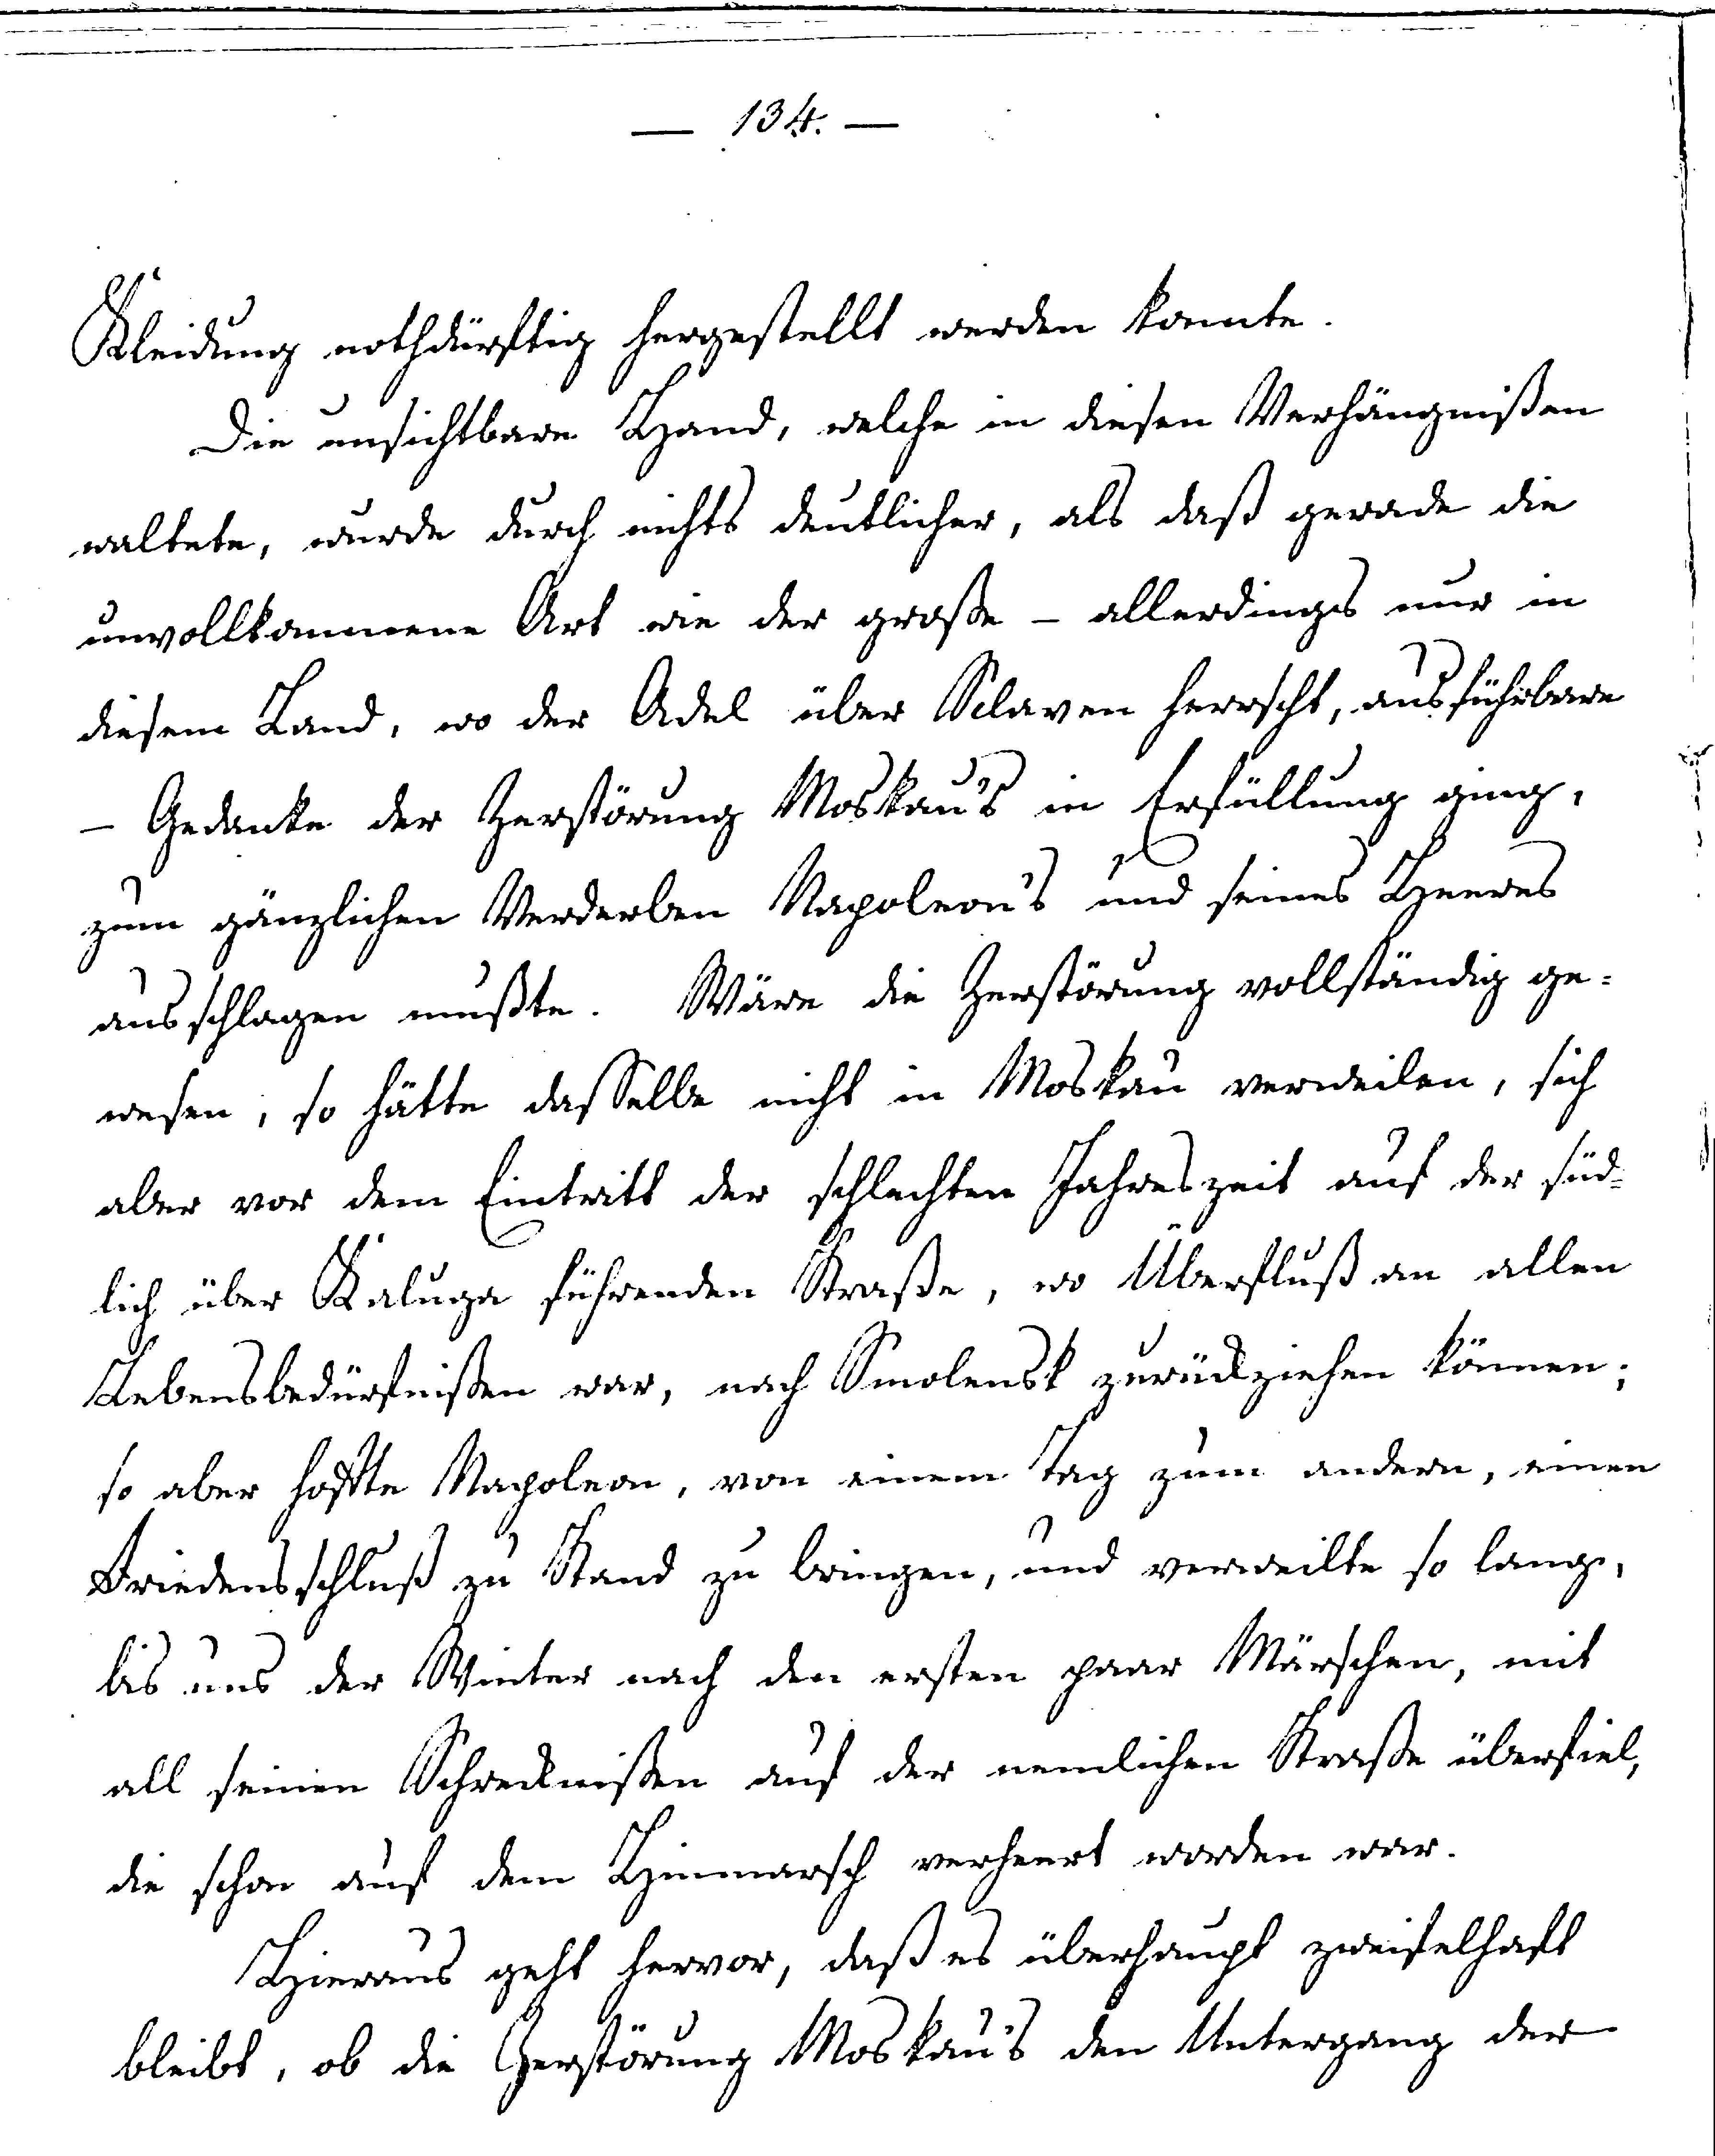 — 134. —
Kleidung nothdürftig hergestellt werden konnte.
Die unsichtbare Hand, welche in diesen Verhängnißen
waltete, wurde durch nichts deutlicher, als daß gerade die
unvollkommene Art wie der große – allerdings nur in
diesem Land, wo der Adel über Sclaven herrscht, ausführbare
– Gedanke der Zerstörung Moskau's in Erfüllung ging,
zum gänzlichen Verderben Napoleon's und seines Heeres
ausschlagen mußte. Wäre die Zerstörung vollständig ge-
wesen, so hätte dasselbe nicht in Moskau verweilen, sich
aber vor dem Eintritt der schlechten Jahreszeit auf der süd-
lich über Kaluga führenden Straße, wo Überfluß an allen
Lebensbedürfnißen war, nach Smolensk zurückziehen können;
so aber hoffte Napoleon, von einem Tag zum andern, einen
Friedensschluß zu Stand zu bringen, und verweilte so lang,
bis uns der Winter nach den ersten paar Märschen, mit
all seinen Schrecknißen auf der nemlichen Straße überfiel,
die schon auf dem Hinmarsch verheert worden war.
Hieraus geht hervor, daß es überhaupt zweifelhaft
bleibt, ob die Zerstörung Moskau's den Untergang der